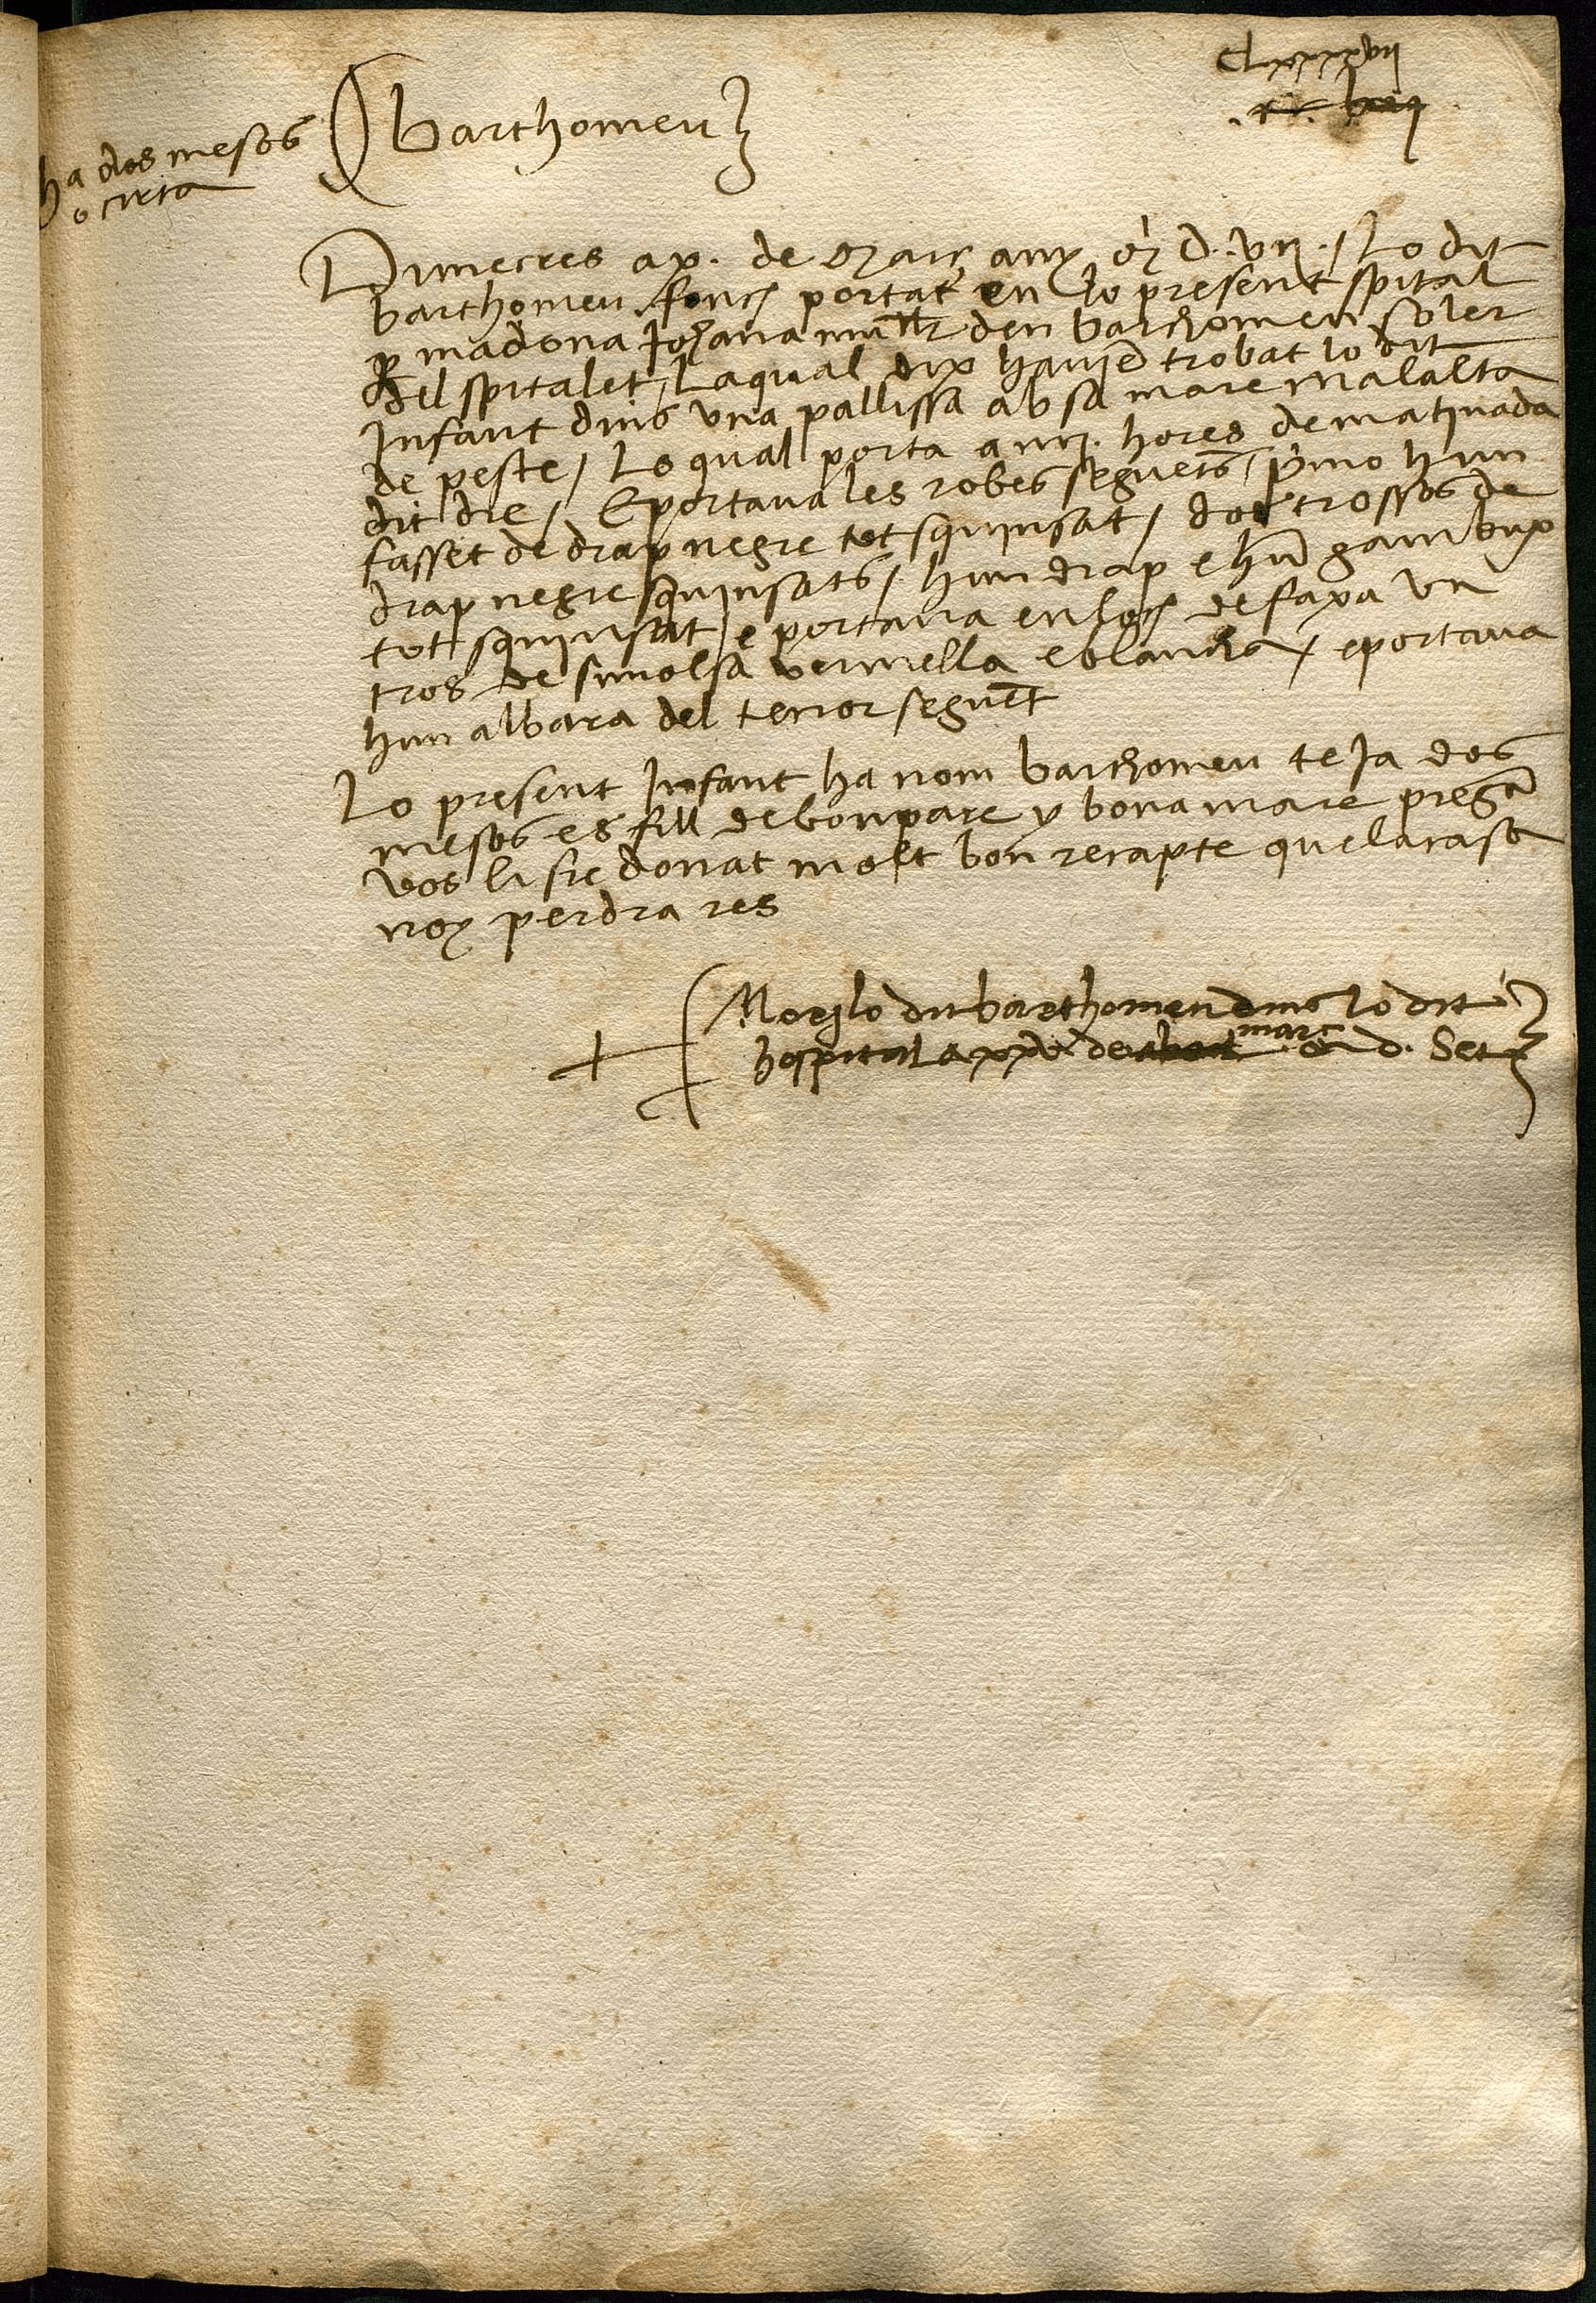 Clxxxxvii
ha dos mesos
o circa
Barthomeu
Dimecres a x. de Març any M D. vii. / Lo dit
barthomeu fonch portat en lo present spital
per madona Johana mullr den barthomeu soler
del spitalet / Laqual dix hauie trobat lo dit
Infant dins vna pallissa ab sa mare malalta
de peste / Loqual porta a hores de matinada
dit die / E portaua les robes seguets / pmo hun
fasset de drap negre tot squinsat / dos trossos de
drap negre squinsats / hun drap e hu gambux
tot squinsat e portaua en loch de faxa vn
tros de simolsa vermella e blancha / e portaua
hun albara del tenor seguet
Lo present Infant ha nom barthomeu te Ja dos
mesos es fill de bon pare y bona mare pregā
vos li sie donat molt bon recapte que la casa
noy perdra res
Mori lo dit barthomeu dins lo dit
hospital a xxv de març M d. Set